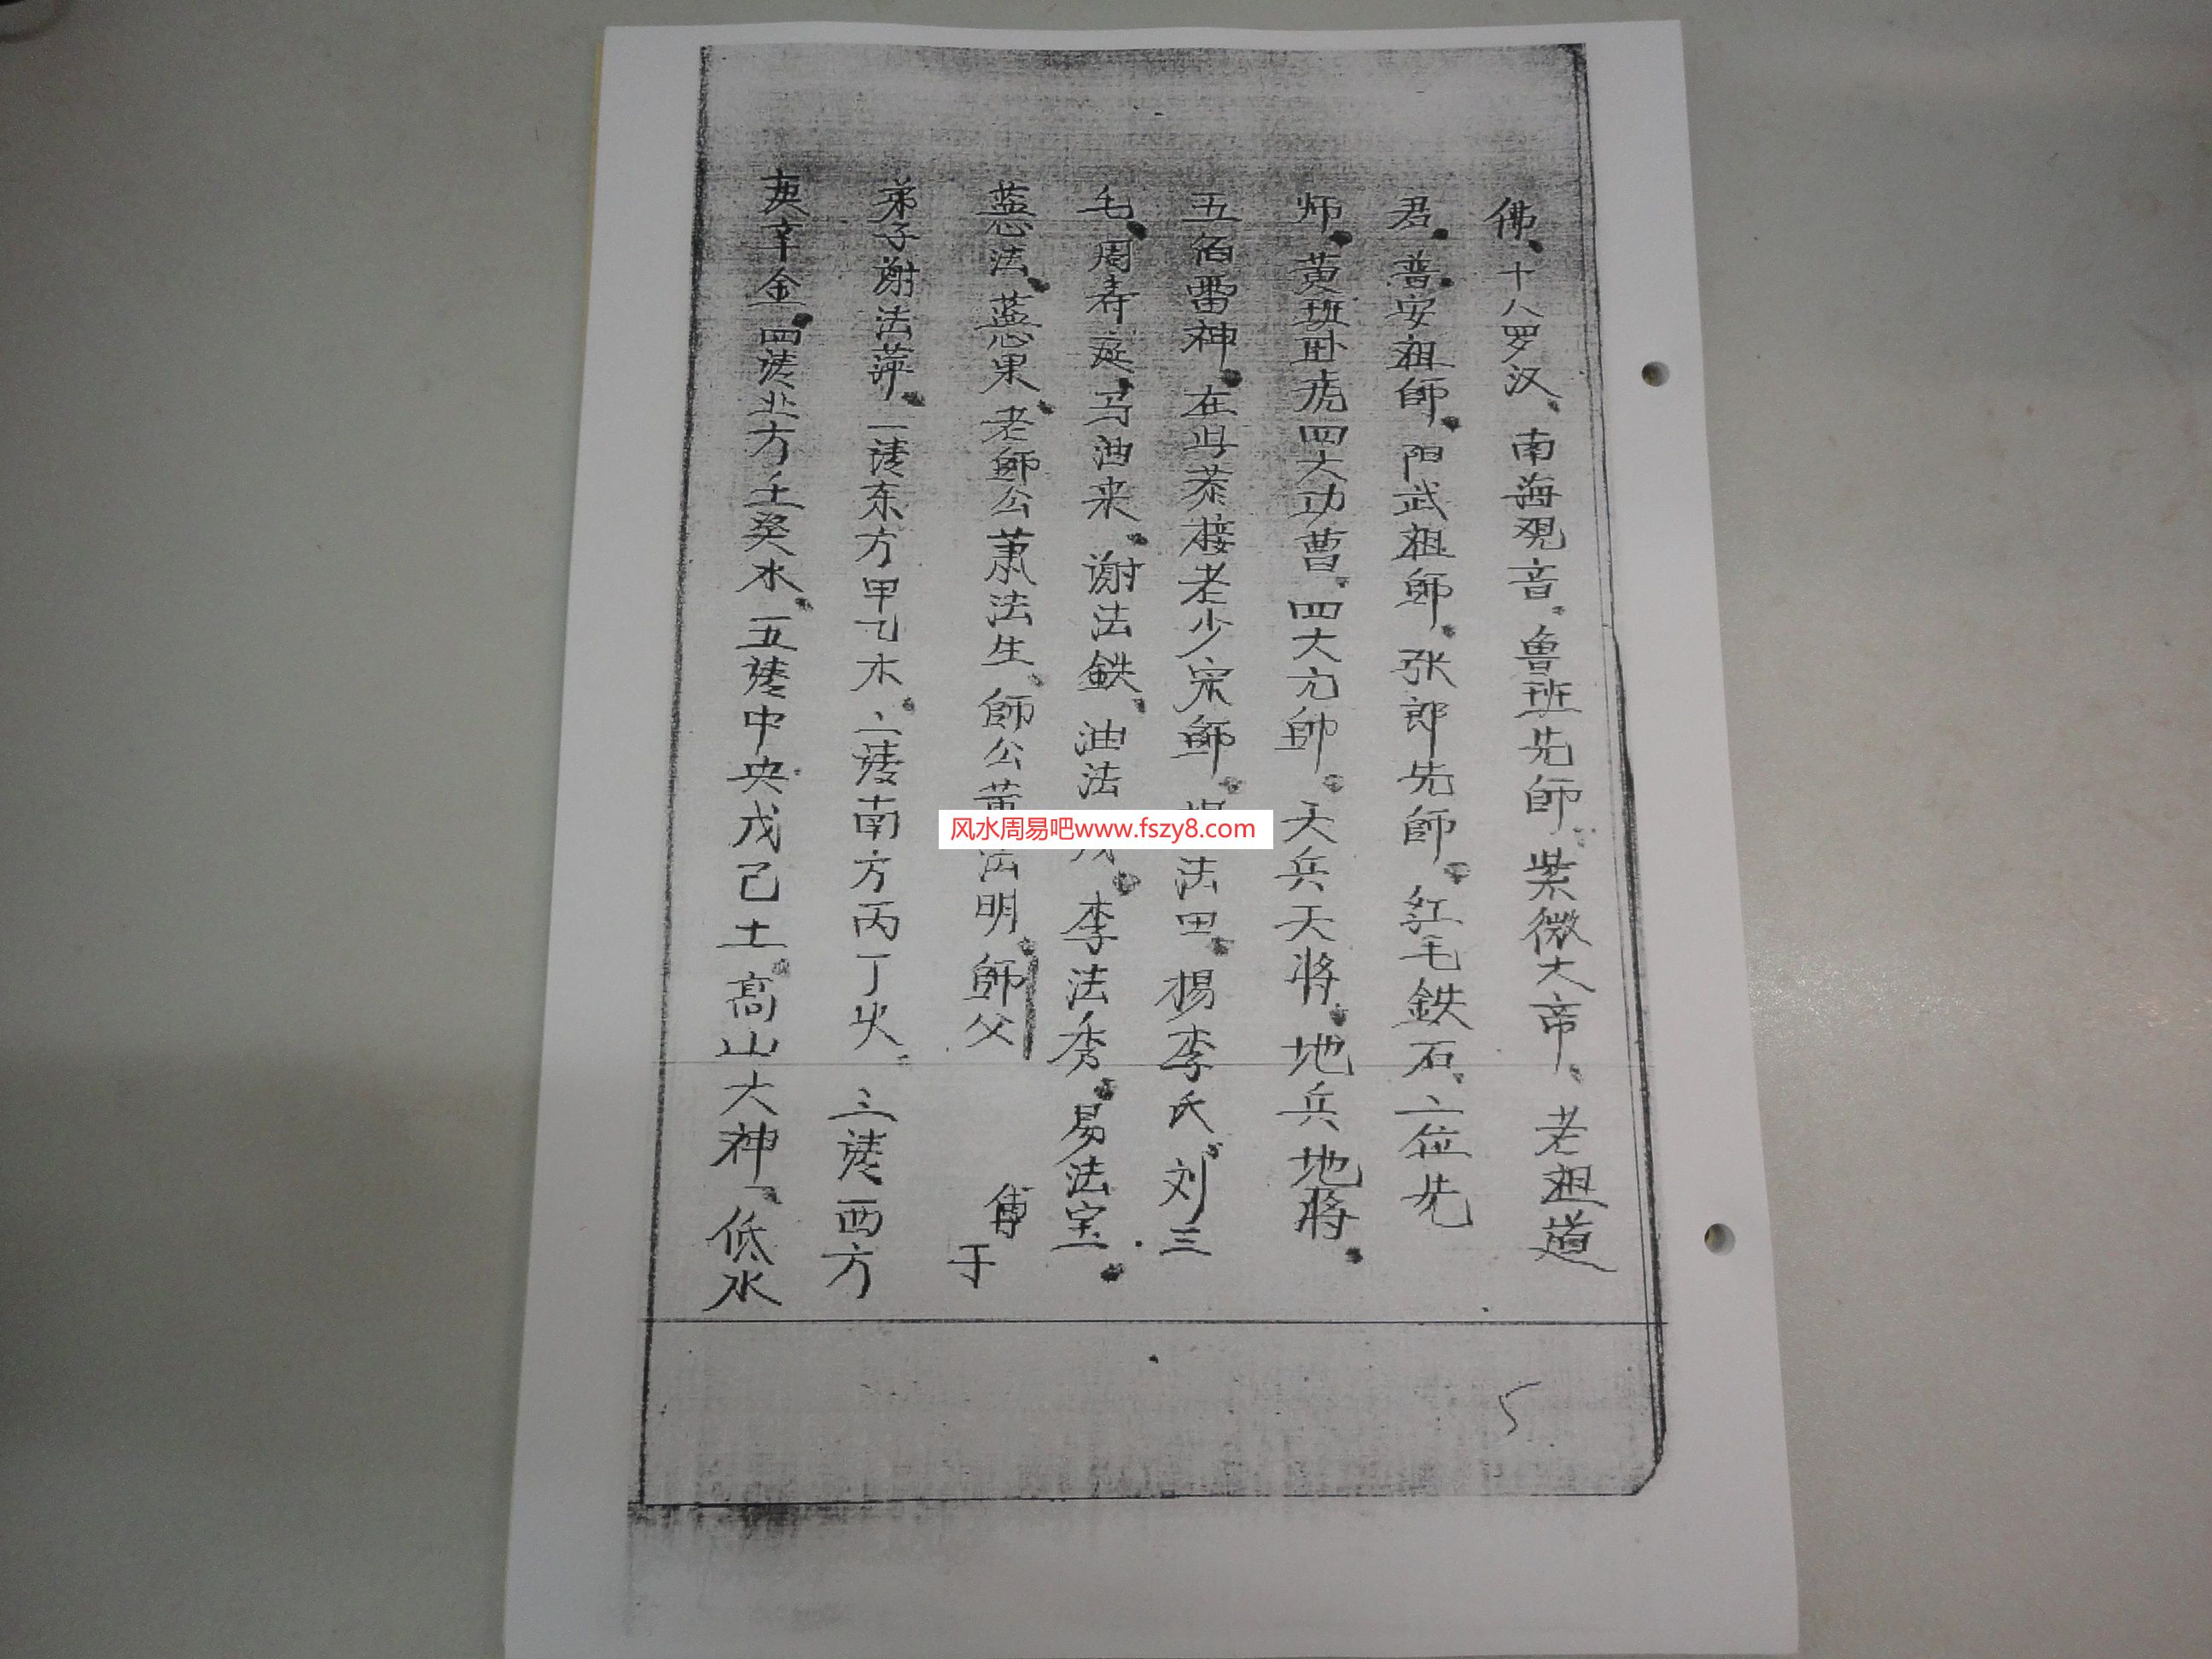 佛、十八罗汉、南海观音。鲁班先師。紫微大帝。老祖道
君。普安祖師。阳武祖師。张郎先師。红毛鉄石、二位先
师。黄班卧虎四大功曹。四大元帥。天兵天将。地兵地将。
五佰雷神。在此恭接老少宗師。法田。楊李氏、刘三
毛、周寿廷、马油来、谢法鉄、油法。李法秀。易法宝。
法、果、老師公萧法生、師公黄法明、師父 傅于
弟子谢法萍。一请东方甲乙木。二请南方丙丁火。三请西方
庚辛金。四请北方壬癸水。五请中央戊己土。高山大神、低水
5
风水周易吧www.fszy8.com